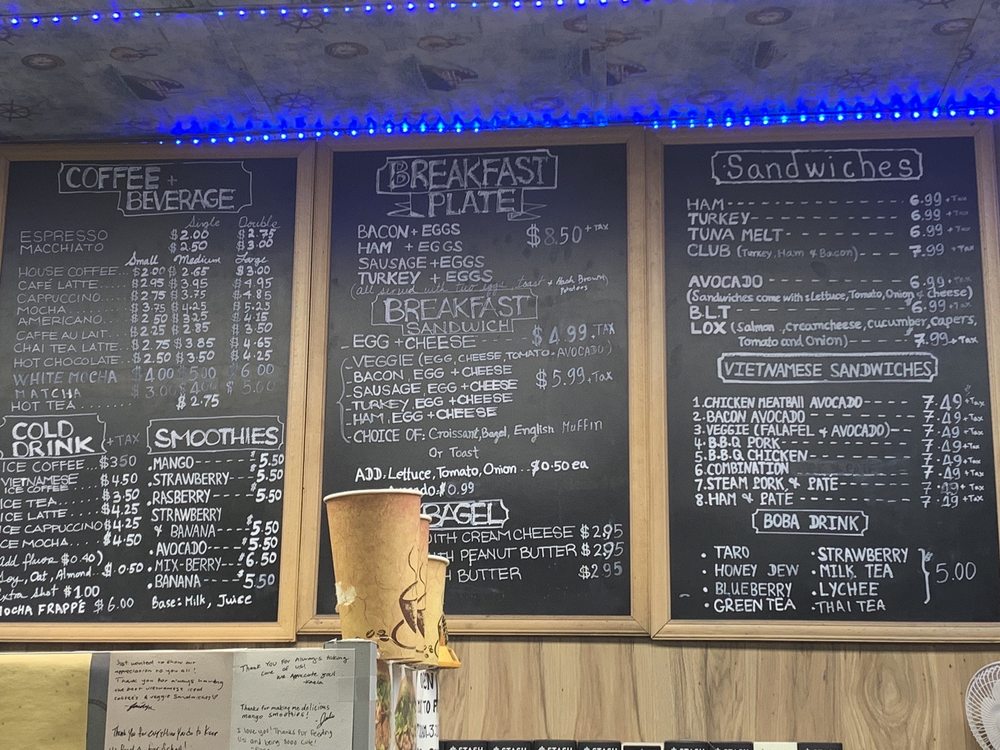 COFFEE +
BEVERAGE
Single Double
ESPRESSO $2.00 $2.75
MACCHIATO $2.50 $3.00
Small Medium Large
HOUSE COFFEE... $2.00 $2.65 $3.00
CAFÉ LATTE... $2.95 $3.95 $4.95
CAPPUCCINO.... $2.75 $3.75 $4.85
MOCHA........ $3.75 $4.25 $5.25
AMERICANO... $2.50 $3.25 $4.15
CAFFE AU LAIT... $2.25 $2.85 $3.50
CHAI TEA LATTE.. $2.75 $3.85 $4.65
HOT CHOCOLATE.. $2.50 $3.50 $4.25
WHITE MOCHA $4.00 $5.00 $6.00
MATCHA $3.00 $4.00 $5.00
HOT TEA ........ $2.75
COLD
DRINK + TAX
ICE COFFEE... $3.50
VIETNAMESE $4.50
ICE COFFEE
ICE TEA... $3.50
ICE LATTE.. $4.25
ICE CAPPUCCINO $4.25
ICE MOCHA... $4.50
add flavor $0.40)
Soy, Oat, Almond.. $0.50
Extra Shot $1.00
MOCHA FRAPPE $6.00
SMOOTHIES
.MANGO------ $5.50
.STRAWBERRY---- $5.50
.RASBERRY---- $5.50
STRAWBERRY
& BANANA--- $5.50
.AVOCADO---- $5.50
.MIX-BERRY-- $6.50
.BANANA---- $5.50
Base: Milk, Juice
BREAKFAST
PLATE
BACON + EGGS $8.50 + TAX
HAM + EGGS
SAUSAGE + EGGS
TURKEY + EGGS
(all served with two eggs, toast + Hash Browns
Potatoes
BREAKFAST
SANDWICH
- EGG + CHEESE------- $4.99 +TAX
VEGGIE (EGG, CHEESE, TOMATO + AVOCADO)
- BACON, EGG + CHEESE $5.99 + Tax
- SAUSAGE, EGG + CHEESE
- TURKEY, EGG + CHEESE
- HAM, EGG + CHEESE
- CHOICE OF: Croissant, Bagel, English Muffin
Or Toast
ADD. Lettuce, Tomato, Onion.. $0.50 ea
$0.99
BAGEL
WITH CREAM CHEESE $2.95
PEANUT BUTTER $2.95
BUTTER $2.95
Sandwiches
HAM--------------- 6.99 + Tax
TURKEY----------- 6.99 + Tax
TUNA MELT-------- 6.99 + Tax
CLUB (Turkey, Ham & Bacon)---- 7.99 + Tax
AVOCADO------------ 6.99 + Tax
(Sandwiches come with : Lettuce, Tomato, Onion & cheese)
BLT--------------- 6.99 + Tax
LOX (Salmon, Creamcheese, Cucumber, Capers,
Tomato and Onion)------ 7.99 + Tax
VIETNAMESE SANDWICHES
1.CHICKEN MEATBALL AVOCADO---- 7.49 + Tax
2.BACON AVOCADO--------- 7.49 + Tax
3.VEGGIE (FALAFEL & AVOCADO)-- 7.49 + Tax
4.B.B.Q PORK---------- 7.49 + Tax
5.B.B.Q CHICKEN-------- 7.49 + Tax
6.COMBINATION-------- 7.49 + Tax
7.STEAM PORK & PATE----- 7.49 + Tax
8.HAM & PATE--------- 7.49 + Tax
BOBA DRINK
• TARO • STRAWBERRY
• HONEY DEW • MILK TEA } 5.00
• BLUEBERRY • LYCHEE
• GREEN TEA • THAI TEA
Just wanted to show our
appreciation to you all!
Thank you for always having
the best vietnamese iced
coffee's & veggie Sandwiches!
Thank You For Always taking
Care of us!
We Appreciate you!
Thanks for making me delicious
mango smoothies!
- Julie
I love you! Thanks for feeding
us and being sooo cute!